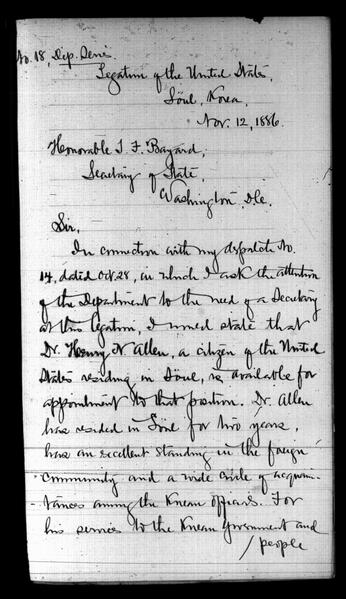 No. 18, Dip. Series
Legation of the United States,
Söul, Korea,
Nov. 12, 1886.
Honorable T. F. Bayard,
Secretary of State,
Washington, D.C.
Sir,
In connection with my dispatch No.
14, dated Oct. 28, in which I ask the attention
of the Department to the need of a Secretary
at this legation, I would state that
Dr. Henry N. Allen, a citizen of the United
States residing in Söul, is available for
appointment to that position. Dr. Allen
has resided in Söul for two years,
has an excellent standing in the foreign
community and a wide circle of acquain-
tances among the Korean officials. For
his services to the Korean Government and
/people